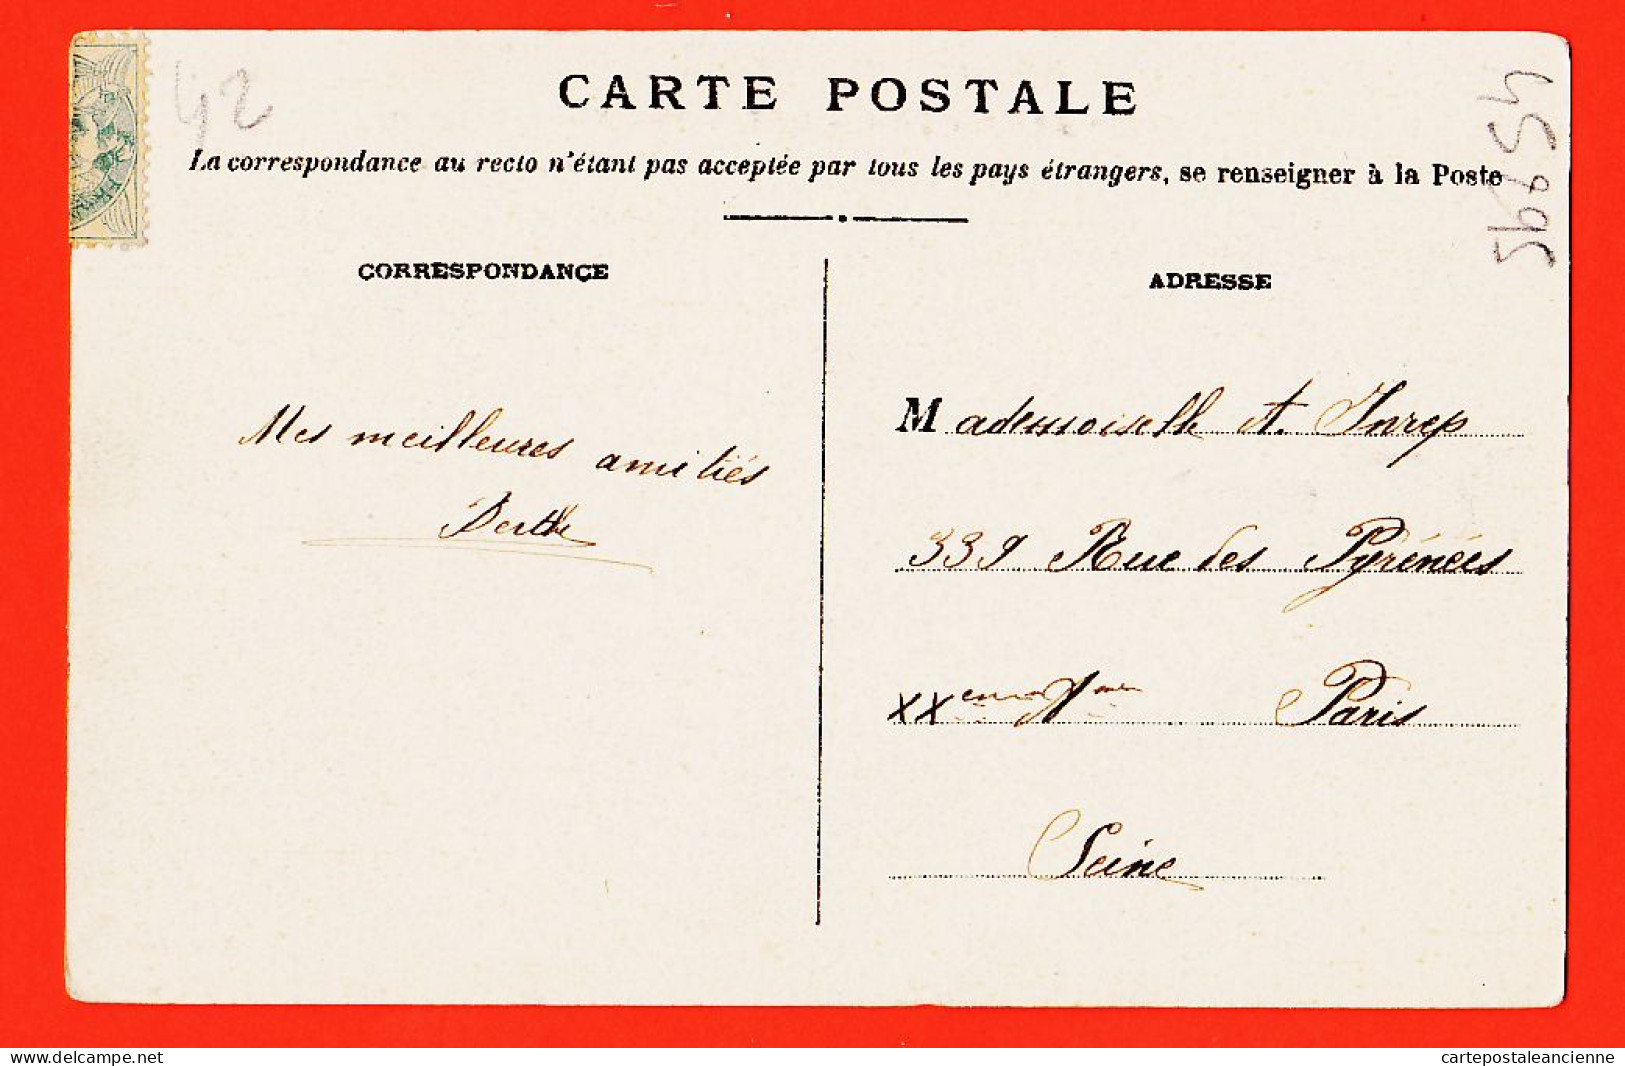 42
CARTE POSTALE
La correspondance au recto n'étant pas acceptée par tous les pays étrangers, se renseigner à la Poste
CORRESPONDANCE
ADRESSE
Mes meilleures amitiés
Berthe
Mademoiselle A. Inrep
339 Rue des Pyrénées
XXeme Ame Paris
Seine
delcampe.net
cartepostaleancienne